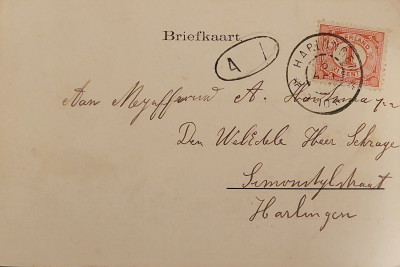 Briefkaart.
A 1
HARLINGEN
Aan Mejuffrouw A.
Den WelEdele Heer Schrage
Simonstijlstraat
Harlingen